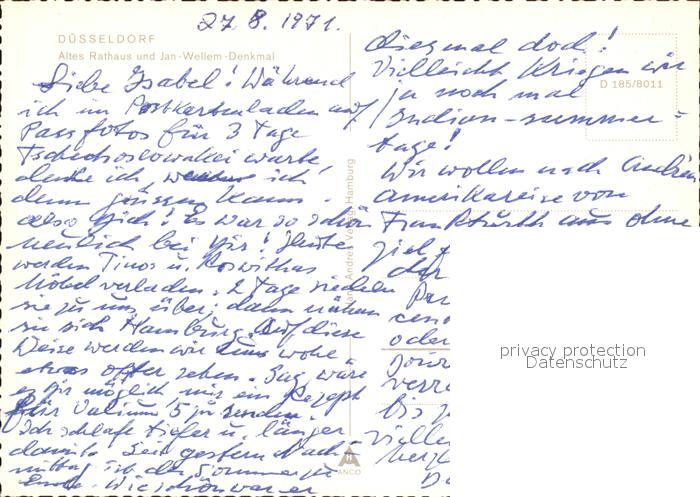 27.8.1971.
DÜSSELDORF
Altes Rathaus und Jan-Wellem-Denkmal
Liebe Isabel! Während
ich im Postkartenladen auf
Passfotos für 3 Tage
Tschechoslowakei warte
denke ich, ich
denn grüssen kann.
also Dich! Es war so schön
neulich bei Dir! Heute
werden Tinos u. Roswithas
Möbel verladen. 2 Tage siedeln
sie zu uns über, dann nähern
sie sich Hamburg. Auf diese
Weise werden wir uns wohl
etwas öfter sehen. Sag, wäre
es Dir möglich, mir ein Rezept
für Valium 5 zu senden.
Ich schlafe tiefer u. länger
damit. Seit gestern Nach-
mittag ist der Sommer zu
Ende. Wie schön war er
diesmal doch!
Vielleicht kriegen wir
ja noch mal
Indian-summer-
tage!
Wir wollen nach
amerikareise von
Frankfurth aus ohne
Ziel
oder
bis
vielle
herzl
D 185/8011
Hans Andres Verlag, Hamburg
ANCO
privacy protection
Datenschutz